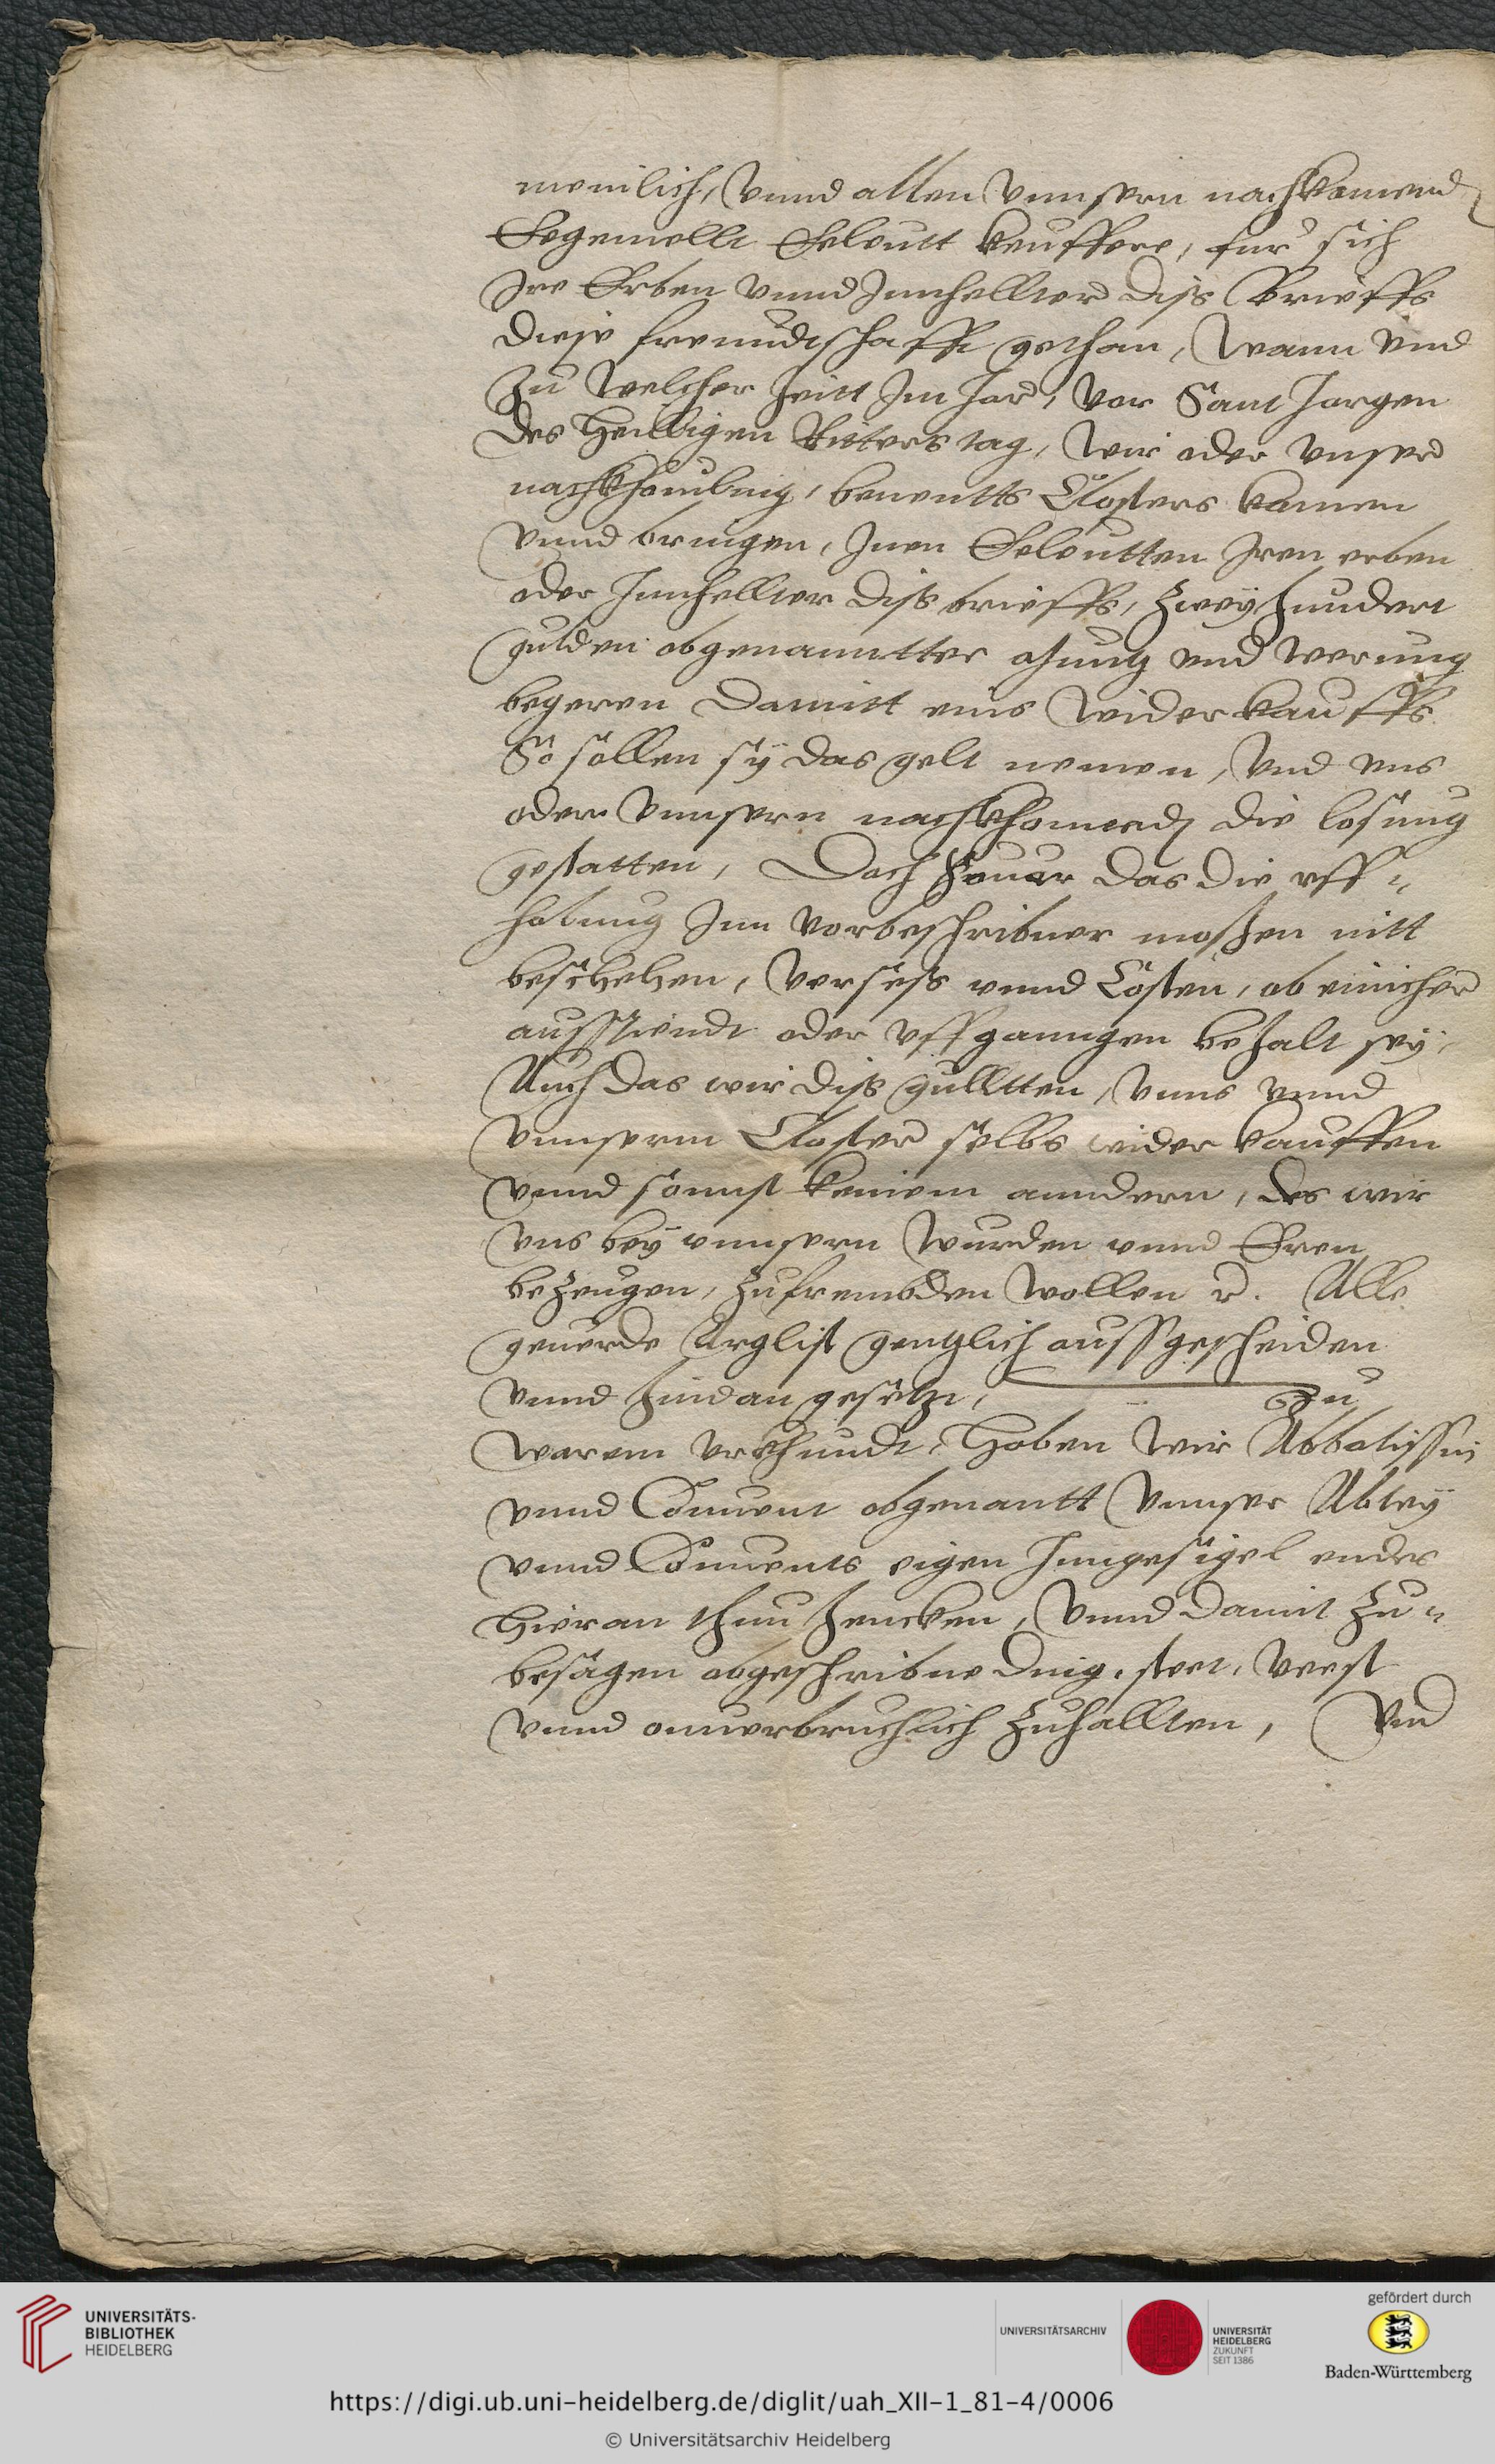 menilich, Vnnd allen Vnnsern nachkomend
Egemellt Eeleutt keuffere, fur sich
Ire Erben vnnd Innhellter diss Brieffs
diese freundtschafft gethan, Wann vnd
Zu welcher Zeitt Im Jar, vor Sant Jorgen
des Heilligen Ritters tag, Wir oder vnser
nachkhomling, benentts Closters komen
vnnd bringen, Inen Eeleutten Iren erben
oder Innhellter diss brieffs, Zweyhundert
gulden obgenanntter vnd werung
begeren damitt eins widerkauffs
So sollen sy das gelt nemen, Vnd vns
oder Vnnsern nachkhomend die losung
gestatten, Doch das die vff-
hebung Inn vorbeschribner mossen nitt
beschehen, versess vnnd Costen, ob einicher
ausstendt oder vffganngen bezalt sey.
Auch das wir diss gulltten, vnns vnnd
vnnserm Closter selbs wider kauffen
vnnd sonnst keinem anndern, des wir
vns bey vnnsern Wurden vnnd Eren
bezeugen, zufrembden wollen Alle
geuerde Arglist genntzlich aussgescheiden
vnnd hindan gesetzt, Zu
warem vrkhundt, Haben Wir Abbatissin
vnnd Conuent obgenantt Vnnser Abtey
vnnd Conuents eigen Inngesigel endes
hieran thun hencken, Vnnd damit zu-
besagen obgeschribne ding, stet, veest
vnnd onuerbruchlich zuhallten, Vnd
UNIVERSITÄTS-
BIBLIOTHEK
HEIDELBERG
UNIVERSITÄTSARCHIV
UNIVERSITÄT
HEIDELBERG
ZUKUNFT
SEIT 1386
gefördert durch
Baden-Württemberg
https://digi.ub.uni-heidelberg.de/diglit/uah_XII-1_81-4/0006
© Universitätsarchiv Heidelberg